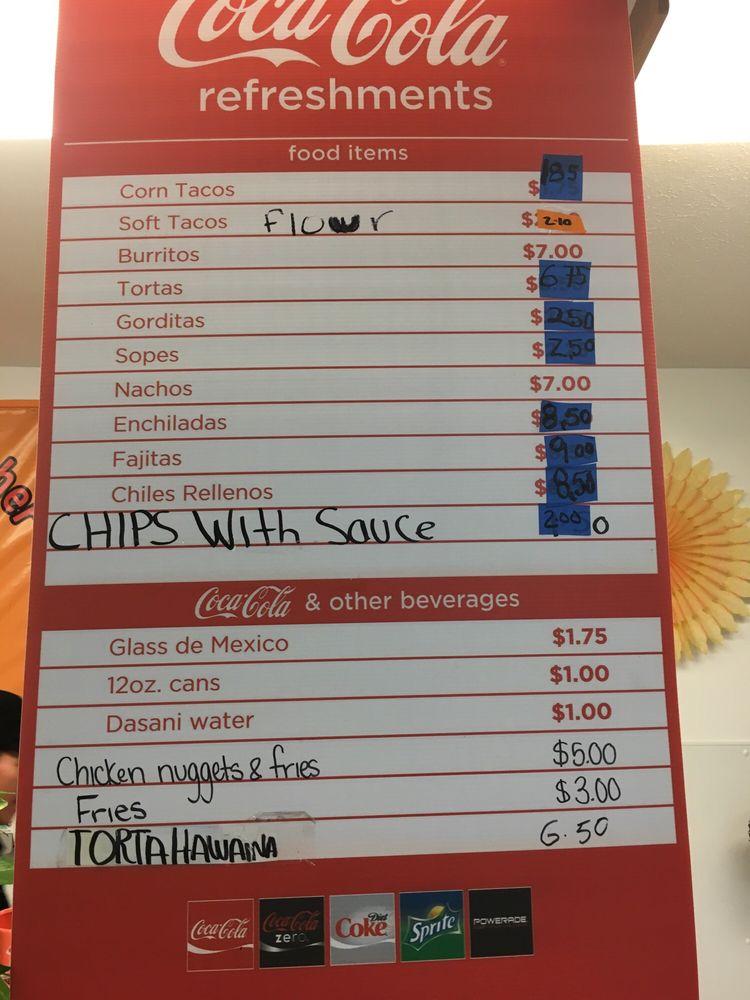 Coca-Cola
refreshments
food items
Corn Tacos $1.85
Soft Tacos Flour $2.10
Burritos $7.00
Tortas $6.75
Gorditas $2.50
Sopes $2.50
Nachos $7.00
Enchiladas $8.50
Fajitas $9.00
Chiles Rellenos $8.50
CHIPS With Sauce 2.00
Coca-Cola & other beverages
Glass de Mexico $1.75
12oz. cans $1.00
Dasani water $1.00
Chicken nuggets & fries $5.00
Fries $3.00
TORTA HAWAINA 6.50
Coca-Cola Coca-Cola zero Diet Coke Sprite POWERADE